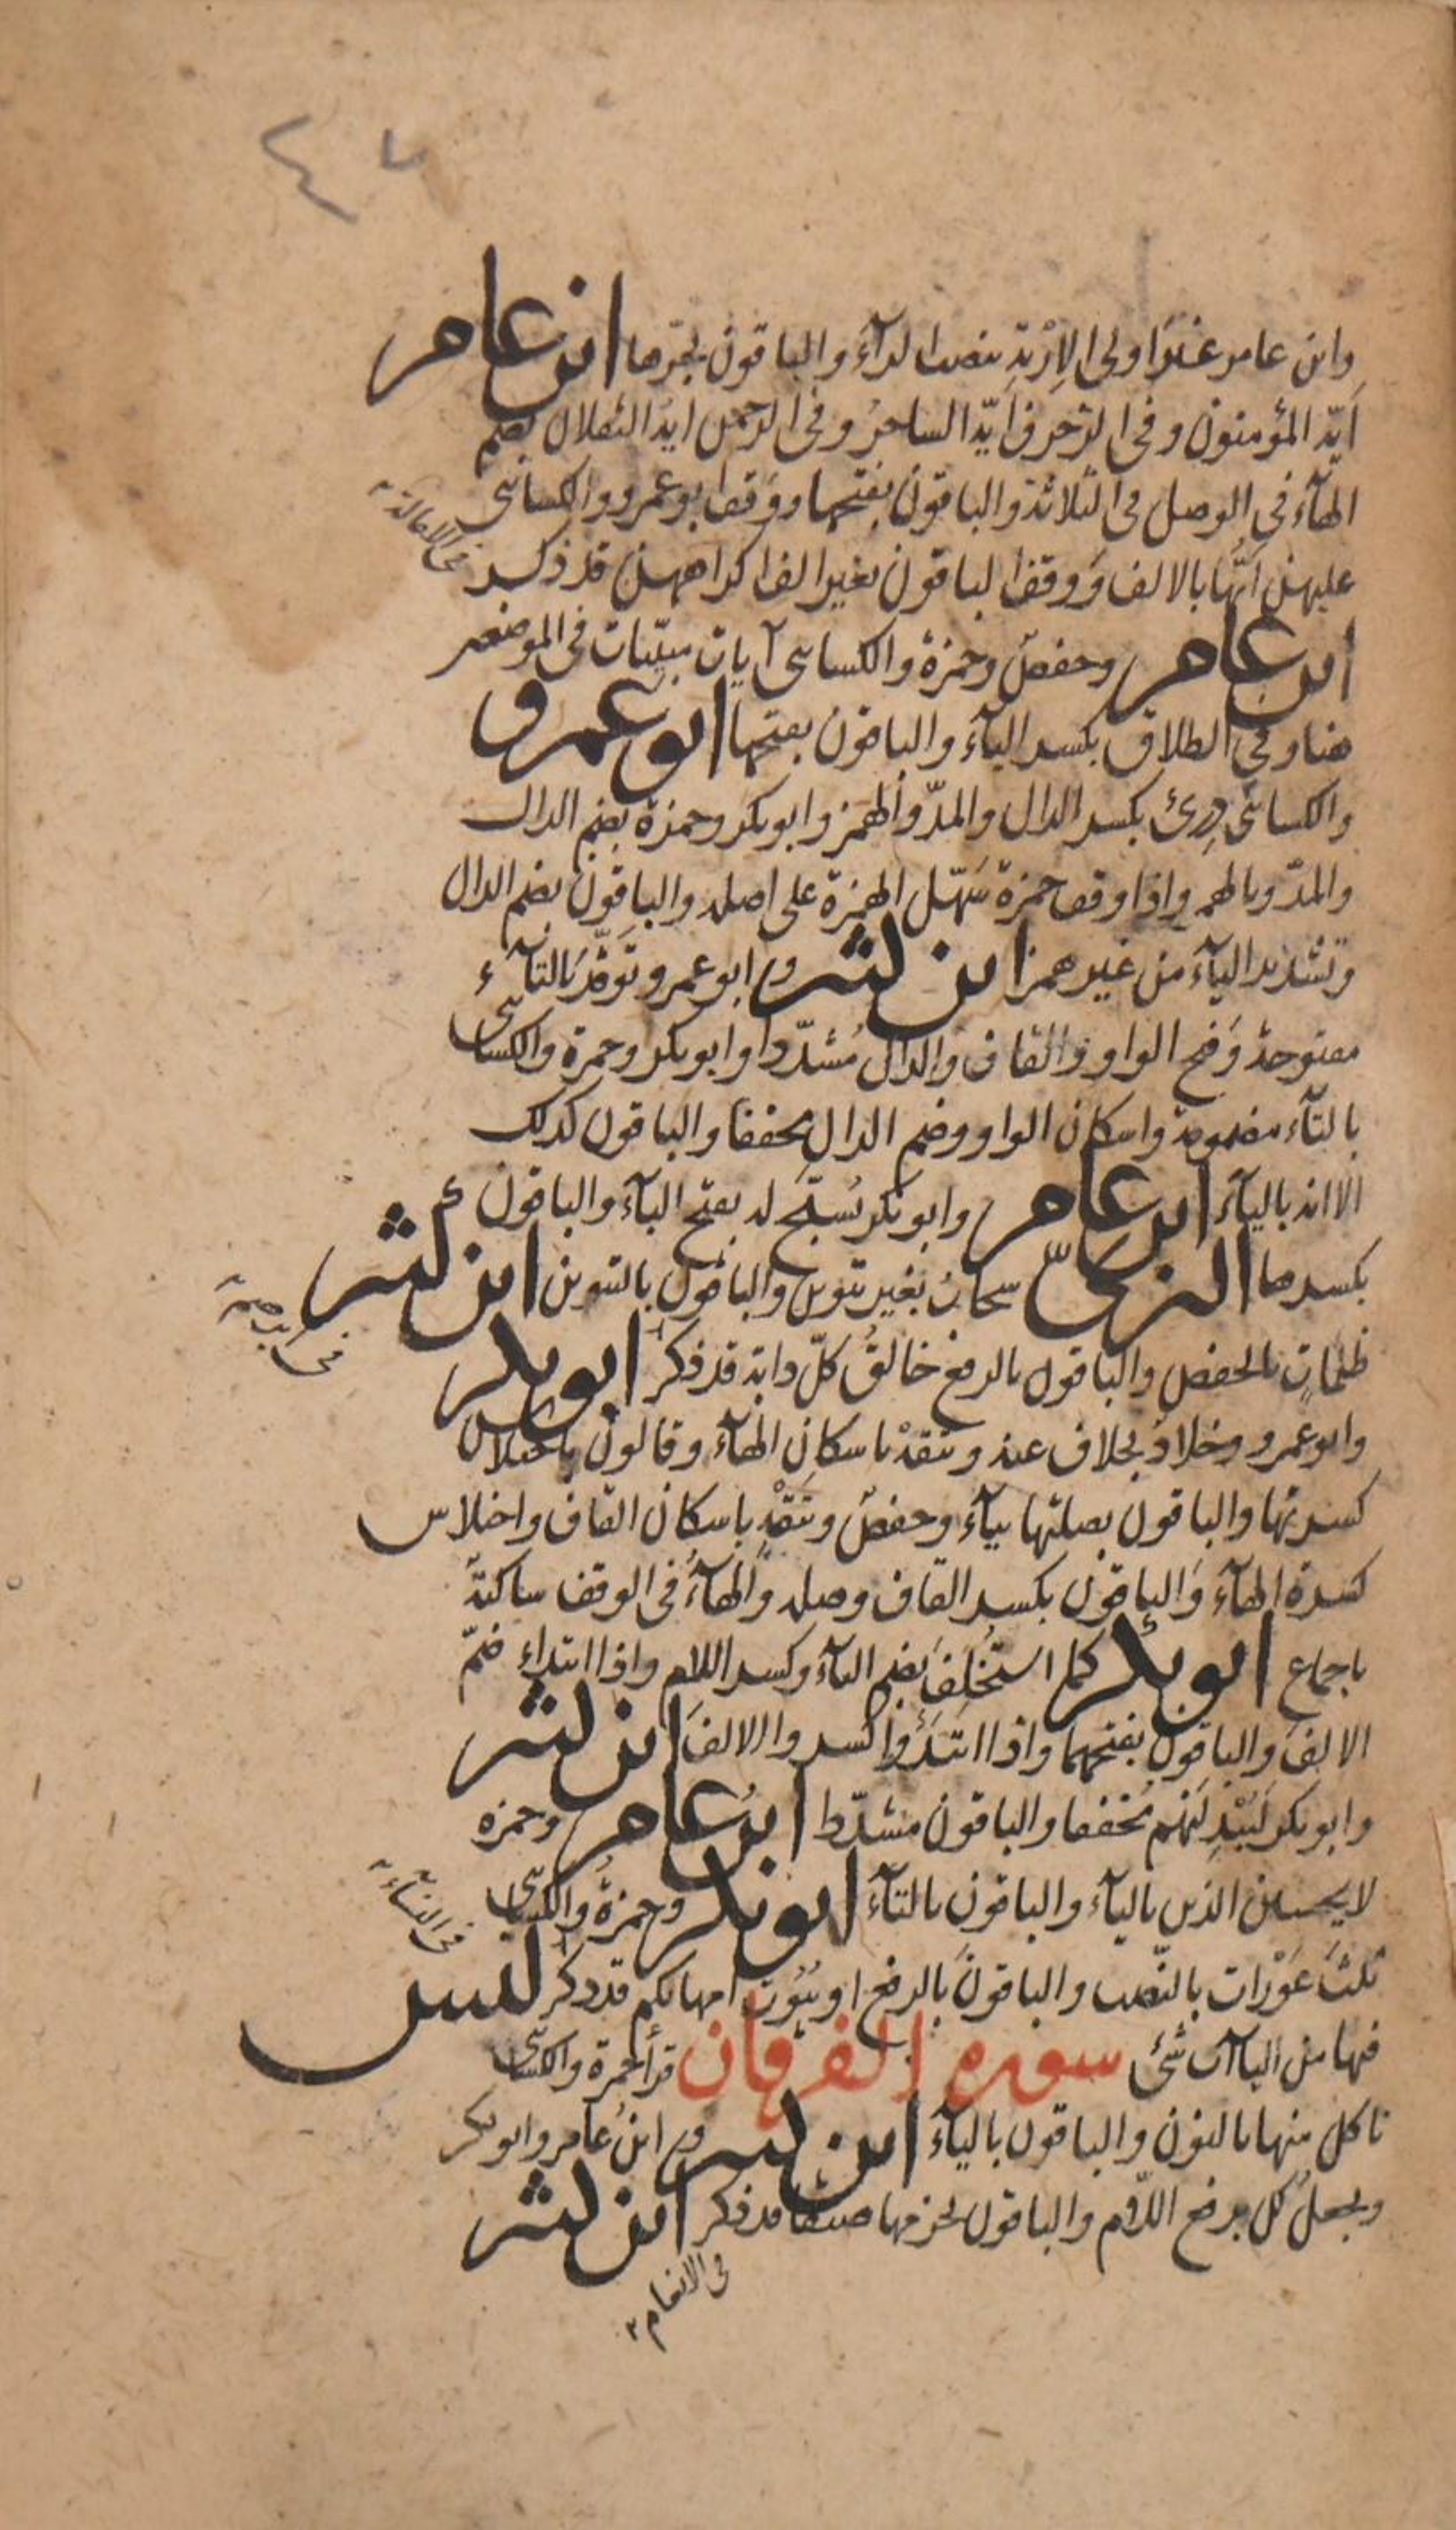 ٤٧
وابن عامر غيرَ اولى الإرْبَةِ بنصب الرآء والباقون بجرّها ابن عامر
أيّه المؤمنون وفى الزخرف أيّه الساحرُ وفى الرحمن ايهُ الثقلان بضم
الهآء فى الوصل فى الثلاثة والباقون بفتحها ووقف ابو عمرو والكسائى
عليهن ايُّها بالالف ووقف الباقون بغير الف اكراههن قد ذكر
فى الامالة
ابن عامر وحفص وحمزة والكسائى آيات مبيّنات فى الموضعين
هنا وفى الطلاق بكسر اليآء والباقون بفتحها ابو عمرو
والكسائى دِرىء بكسر الدال والمدّ والهمز وابوبكر وحمزة بضم الدال
والمدّ وبالهمز واذا وقف حمزة سَهّل الهمزة على اصله والباقون بضم الدال
وتشديد اليآء من غير همز ابن كثير وابو عمرو تَوَقَّدَ بالتآء
مفتوحة وَفتح الواو والقاف والدال مُشدّدا وابوبكر وحمزة والكسائى
بالتآء مضمومة واسكان الواو وضم الدال مخففا والباقون كذلك
الا انه باليآء ابن عامر وابوبكر يُسبَّح له بفتح البآء والباقون
بكسرها البزىّ سحابُ بغير تنوين والباقون بالتنوين ابن كثير
ظلماتٍ بالخفض والباقون بالرفع خالقُ كلّ دابة قد ذكر ابو بكر
فى ابرهيم
وابوعمرو وخلاد بخلاف عنه ويتقهْ باسكان الهآء وقالون باختلاس
كسرتها والباقون بصلتها بيآء وحفص ويتقْهِ باسكان القاف واختلاس
كسرة الهآء والباقون بكسر القاف وصله والهآءُ فى الوقف ساكنة
باجماع ابو بكر كما استُخلِفَ بضم التآء وكسر اللام واذا ابتداء ضمّ
الالفَ والباقون بفتحهما واذا ابتَدَؤا كسروا الالفَ ابن كثير
وابوبكر لَيُبْدِلَنهم مُخففا والباقون مشدّدا ابن عامر وحمزه
لا يحسبن الذين باليآء والباقون بالتآء ابو بكر وحمزةُ والكسائى
ثلثَ عَوْرات بالنّصب والباقونَ بالرفع او بُيُوت امهاتكم قد ذكر ليس
فى النسآء
فيها من اليآات شئ سورة الفرقان قرأ حمزة والكسائى
ناكل منها بالنون والباقون باليآء ابن كثير وابنُ عامر وابوبكر
ويجعلُ لك برفع اللّام والباقون بجزمها ضيقا قد ذكر ابن كثير
فى الانعام